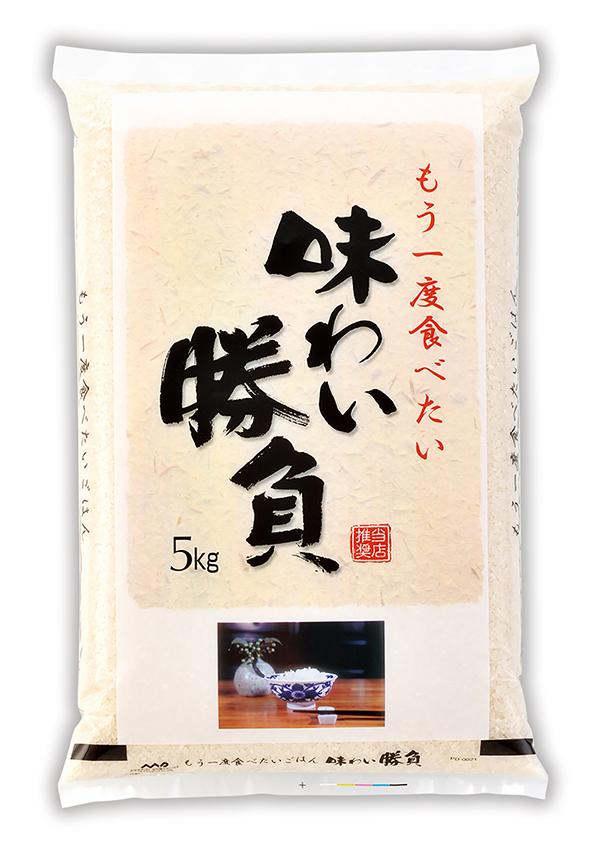 もう一度食べたい
味わい
勝負
5kg
当店
推奨
もう一度食べたいごはん
もう一度食べたいごはん
もう一度食べたいごはん 味わい 勝負
PD-0021